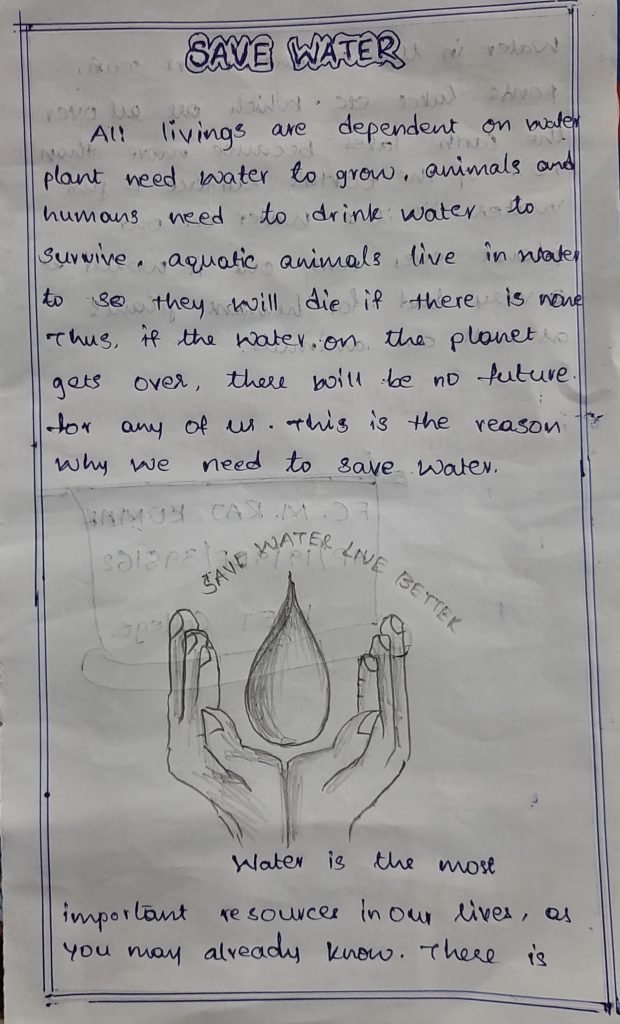 SAVE WATER
All livings are dependent on water
plant need water to grow, animals and
humans need to drink water to
survive. aquatic animals live in water
to so they will die if there is none
Thus, if the water on the planet
gets over, there will be no future
for any of us. This is the reason
why we need to save water.
SAVE WATER LIVE BETTER
Water is the most
important resources in our lives, as
you may already know. There is